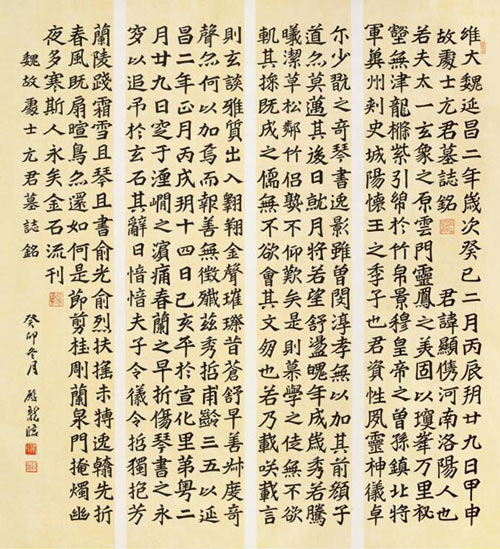 維大魏延昌二年歲次癸巳二月丙辰朔廿九日甲申
故處士元君墓誌銘 君諱顯儁河南洛陽人也
若夫太一玄象之原雲門靈鳳之美固以瓊峯万里秘
壑無津龍樴紫引矧於竹泉景穆皇帝之曾孫鎮北將
軍冀州刺史城陽懷王之季子也君資性夙靈神儀卓
尔少翫之奇琴書逸影雖曾閔淳孝無以加其前顏子
道亦莫邁其後日就月將若望舒盪魄年成歲秀若騰
曦潔草松鄰竹侶孰不仰歎矣是則慕學之徒無不欲
軌其操既成之儒無不欲會其文匆也若乃載咲載言
則玄談雅質出入翱翔金聲璀璨昔蒼舒早善叔度奇
聲亦何以加焉而報善無徵殲茲秀哲甫齡三五以延
昌二年正月丙戌朔十四日己亥卒於宣化里第粵二
月廿九日窆于瀍澗之濱痛春蘭之早折傷琴書之永
穸以追吊於玄石其辭曰愔愔夫子令儀令哲獨挹芳
蘭陵踐霜雪且琴且書俞光俞烈扶搖未摶逸翰先折
春風既扇暄鳥亦還如何是節剪桂剿蘭泉門掩燭幽
夜多寒斯人永矣金石流刊
魏故處士元君墓誌銘
癸卯冬月